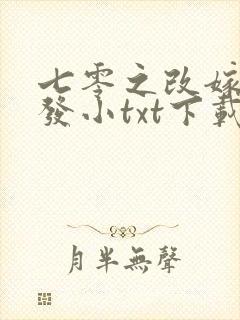 七零之改嫁
發小txt下載
月半無聲